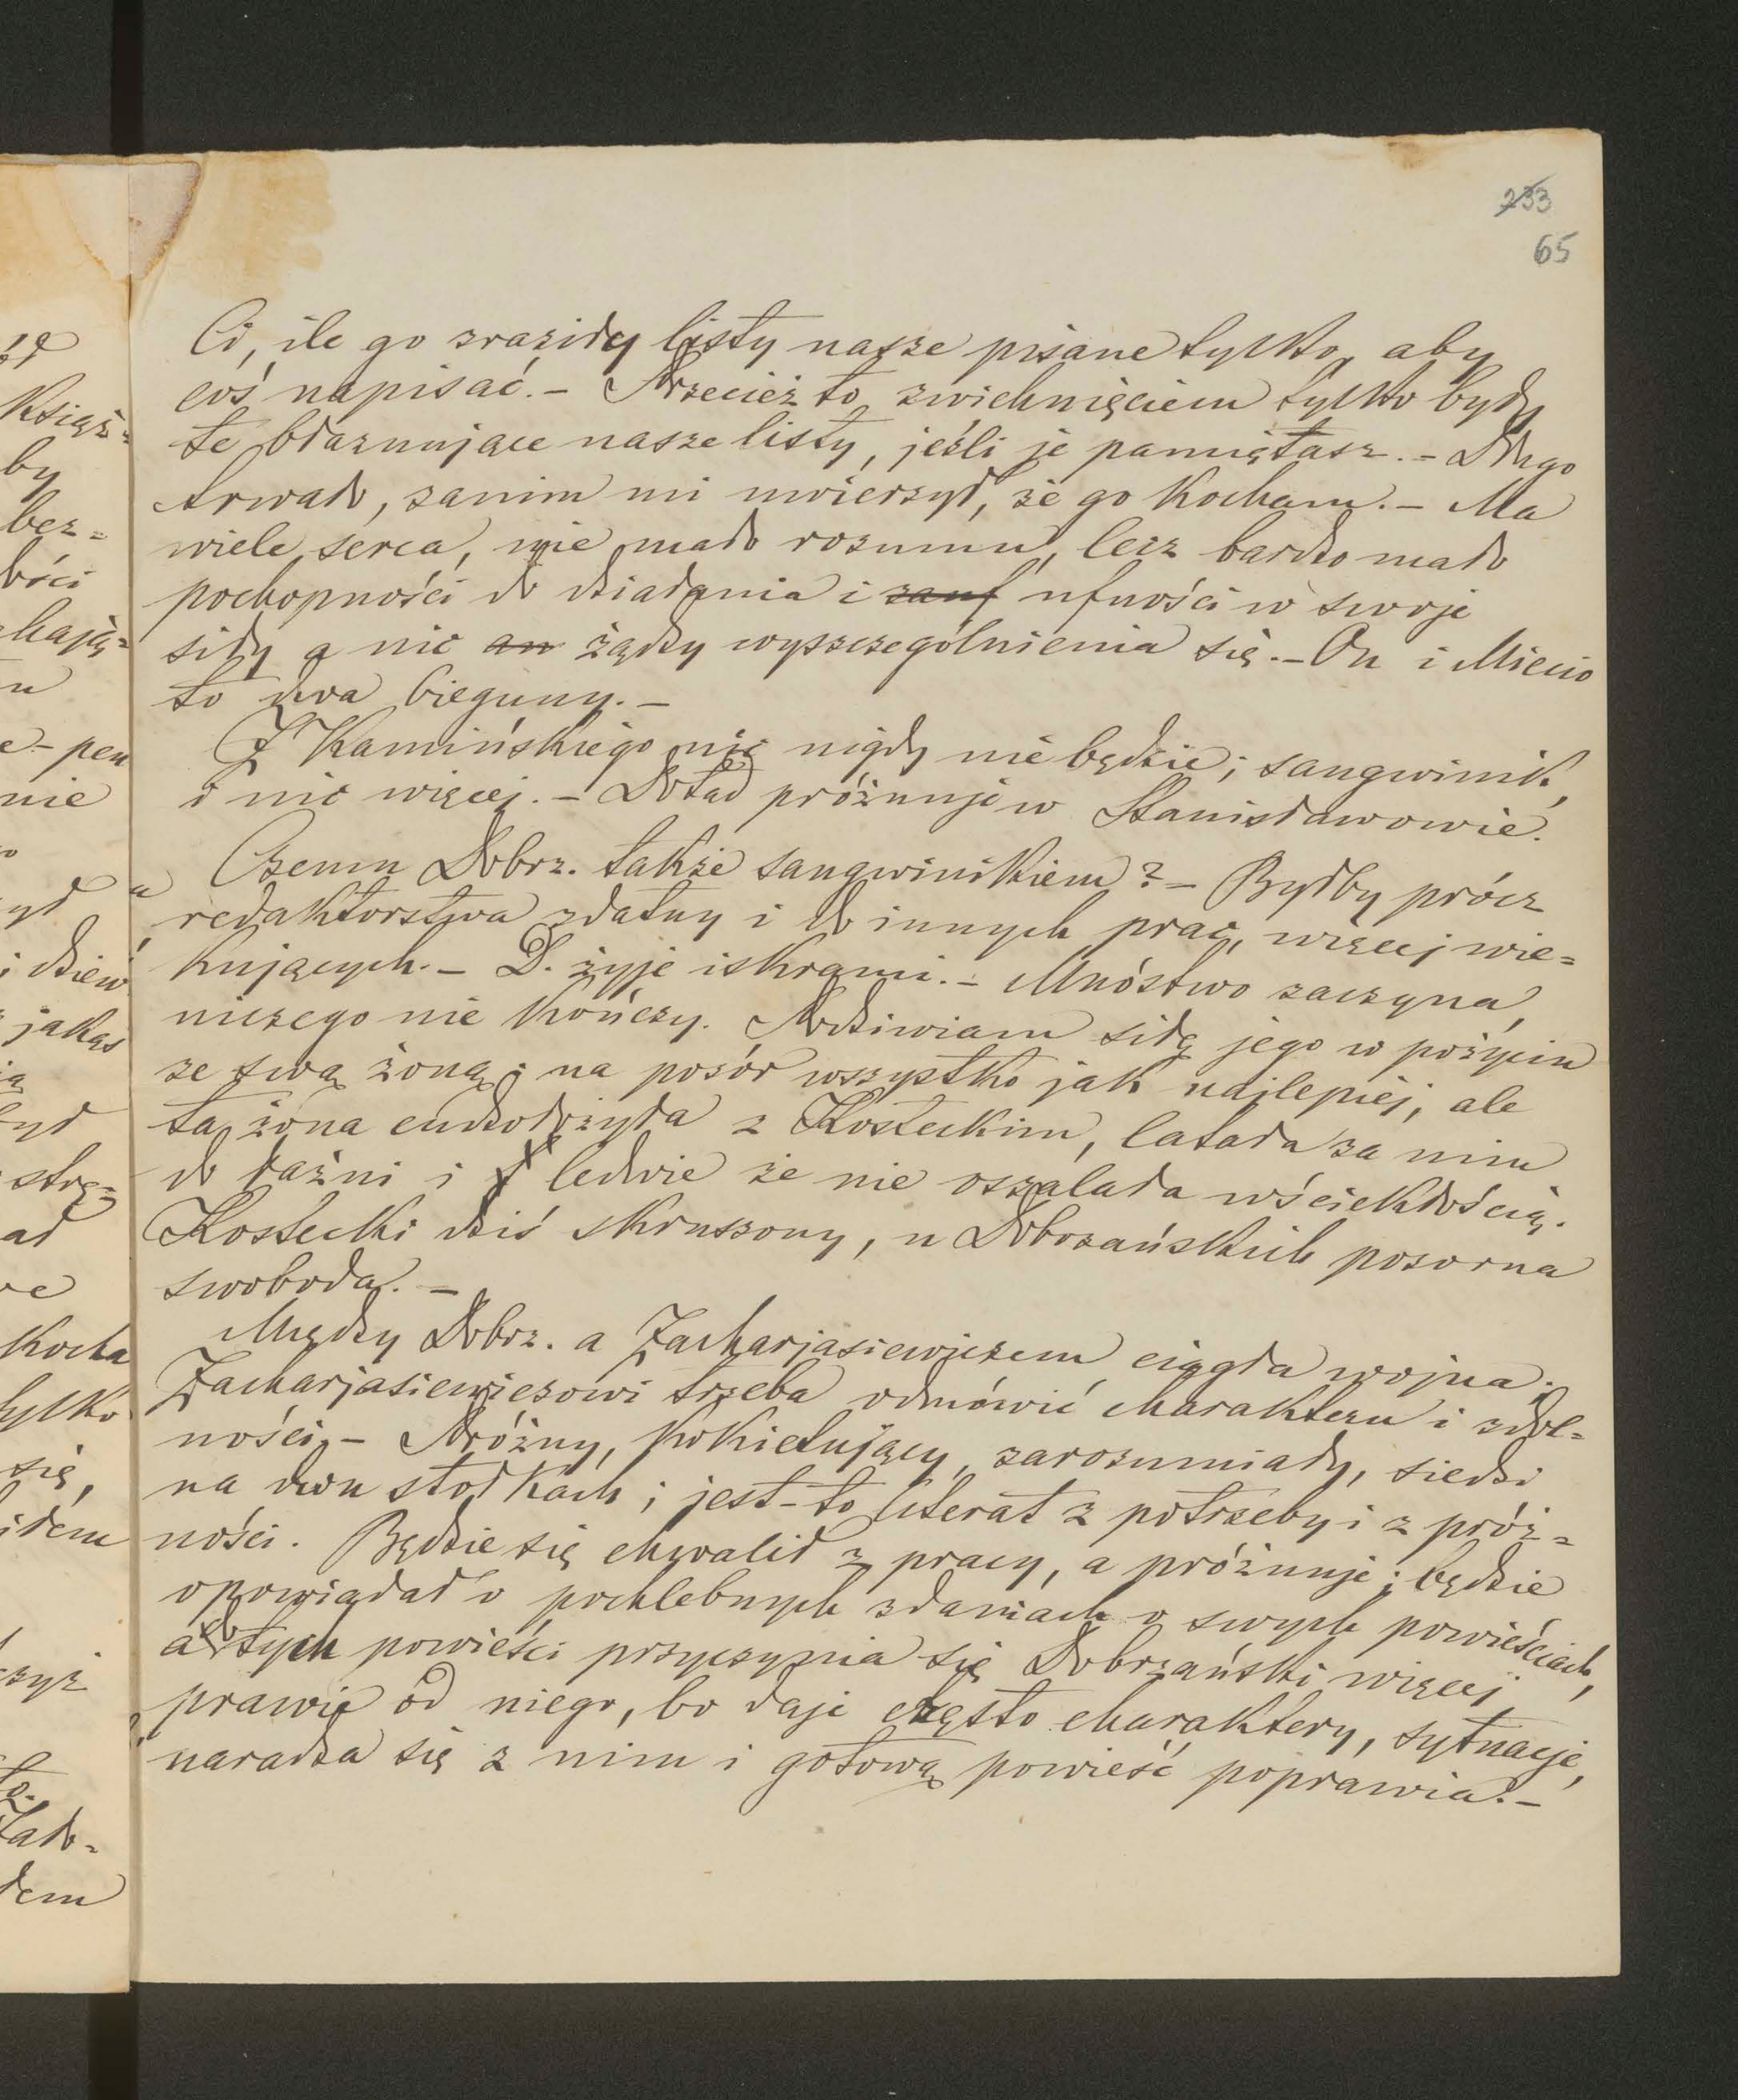 233
65
Ci, ile go zraziły listy nasze pisane tylko, aby
coś napisać. – Przecież to zwichnięciem tylko były
te błaznujące nasze listy, jeśli je pamiętasz. – Długo
trwało, zanim mi uwierzył, że go kocham. – Ma
wiele serca, nie mało rozumu, lecz bardzo mało
pochopności do działania i zauf ufności w swoje
siły a nic an żądzy wyszczególnienia się. – On i Miecio
to dwa bieguny. –
Z Kamińskiego nic nigdy nie będzie; sangwinik,
i nic więcej. – Dotąd próżnuje w Stanisławowie.
Czemu Dobrz. także sangwinikiem? – Byłby prócz
redaktorstwa zdatny i do innych prac, więcej wie=
kujących. – D. żyje iskrami. – Mnóstwo zaczyna,
niczego nie kończy. Podziwiam siłę jego w pożyciu
ze swą żoną; na pozór wszystko jak najlepiej, ale
ta żona cudzołożyła z Kosteckim, latała za nim
do łaźni i ledwie że nie oszalała wściekłością.
Kostecki dziś skruszony, u Dobrzańskich pozorna
swoboda. –
Między Dobrz. a Zacharjasiewiczem ciągła wojna;
Zacharjasiewiczowi trzeba odmówić charakteru i zdol=
ności. – Próżny, kokietujący, zarozumiały, siedzi
na dwu stołkach; jest-to literat z potrzeby i z próż=
ności. Będzie się chwalił z pracy, a próżnuje; będzie
opowiadał o pochlebnych zdaniach o swych powieściach,
a do tych powieści przyczynia się Dobrzański więcej
prawie od niego, bo daje często charaktery, sytuacje,
naradza się z nim i gotową powieść poprawia. –